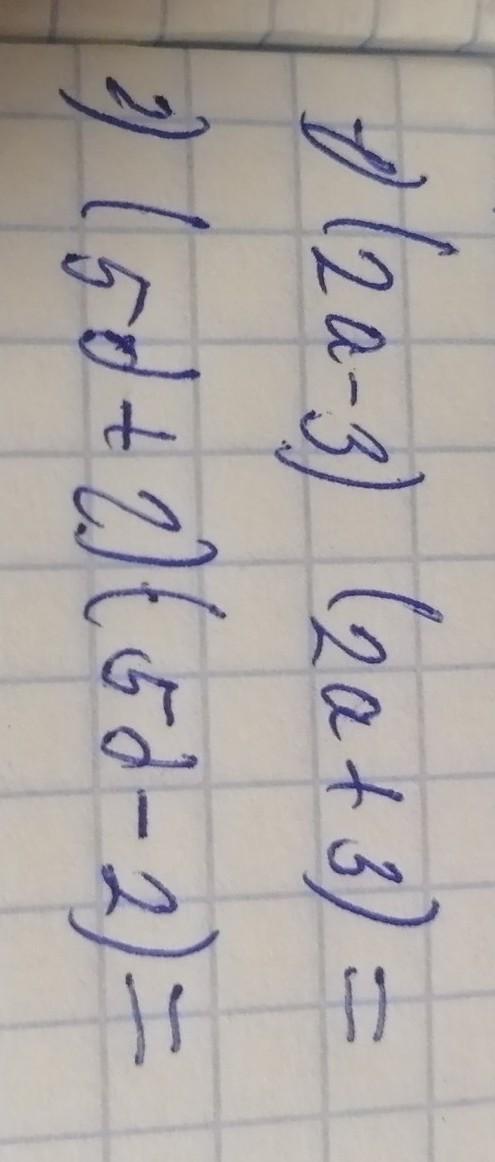 1) (2a-3) (2a+3)=
2) (5d+2)(5d-2)=